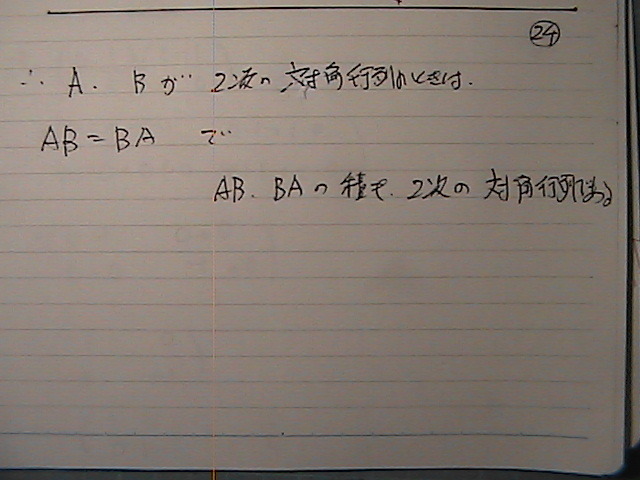 ㉔
∴ A. Bが 2次の 対角行列のときは.
AB=BA で
AB. BAの積も. 2次の対角行列である